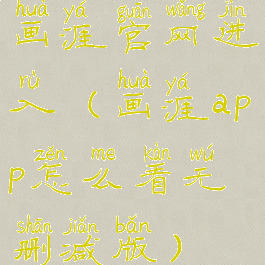 huà yá guān wǎng jìn
画涯官网进
rù huà yá
入(画涯ap
zěn me kàn wú
p怎么看无
shān jiǎn bǎn
删减版)